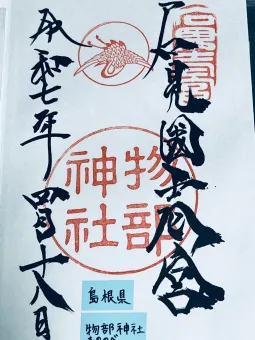 石見國一之宮
物部
神社
令和七年 四月十八日
島根県
物部神社